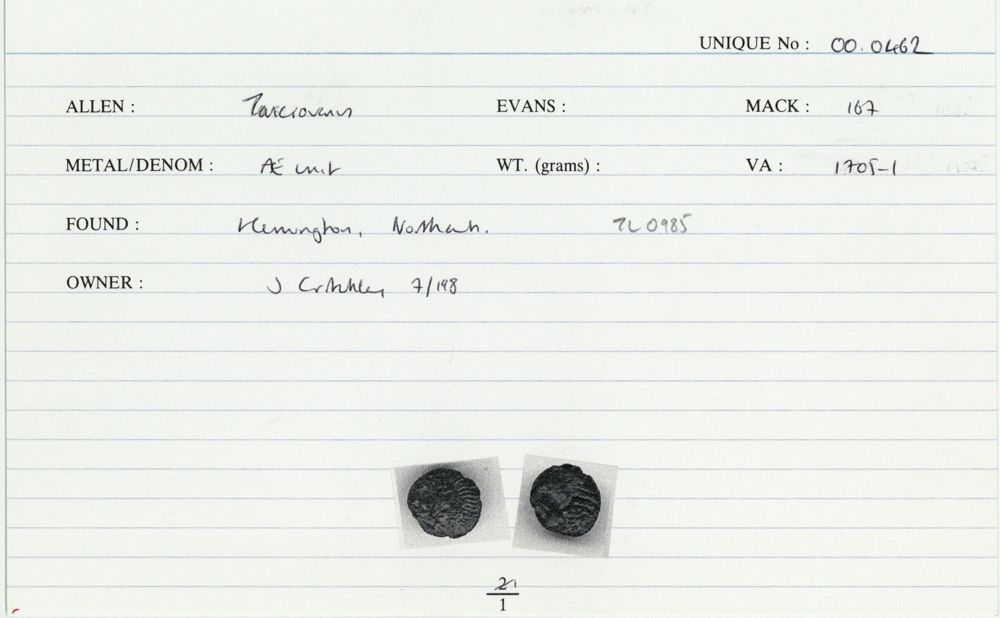 UNIQUE No : 00.0462
ALLEN : Tasciovanus EVANS : MACK : 167
METAL/DENOM : Æ unit WT. (grams) : VA : 1705-1
FOUND : Hemington, Northants. TL 0985
OWNER : J Critchley 7/198
2
1